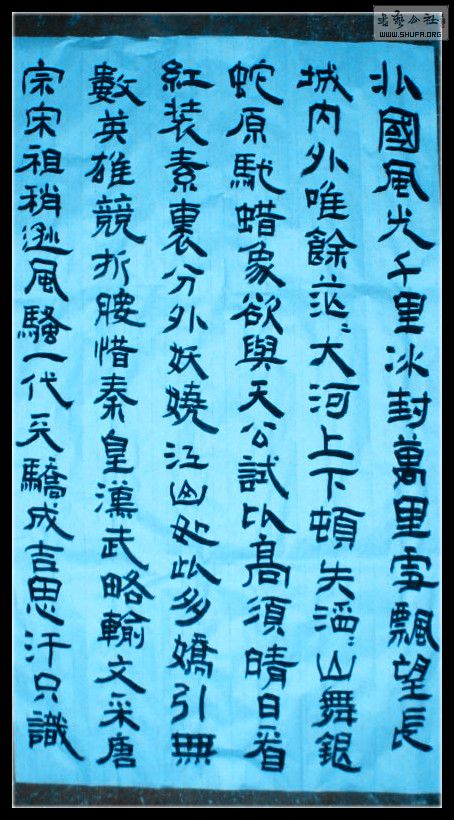 书藝公社
WWW.SHUFA.ORG
北國風光千里冰封萬里雪飄望長
城内外唯餘茫〻大河上下頓失滔〻山舞銀
蛇原馳蜡象欲與天公試比高須晴日看
紅装素裹分外妖嬈江山如此多嬌引無
數英雄競折腰惜秦皇漢武略輸文采唐
宗宋祖稍遜風騷一代天驕成吉思汗只識